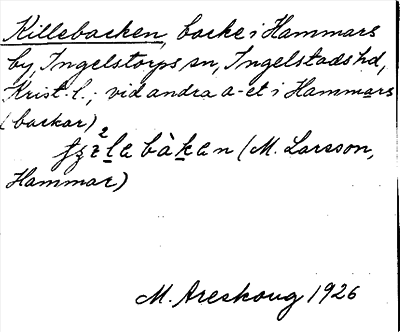 Killebacken, backe i Hammars
by, Ingelstorps sn, Ingelstads hd,
Krist. l.; vid andra a-et i Hammars
(backar)
(M. Larsson,
Hammar)
M. Areskoug 1926